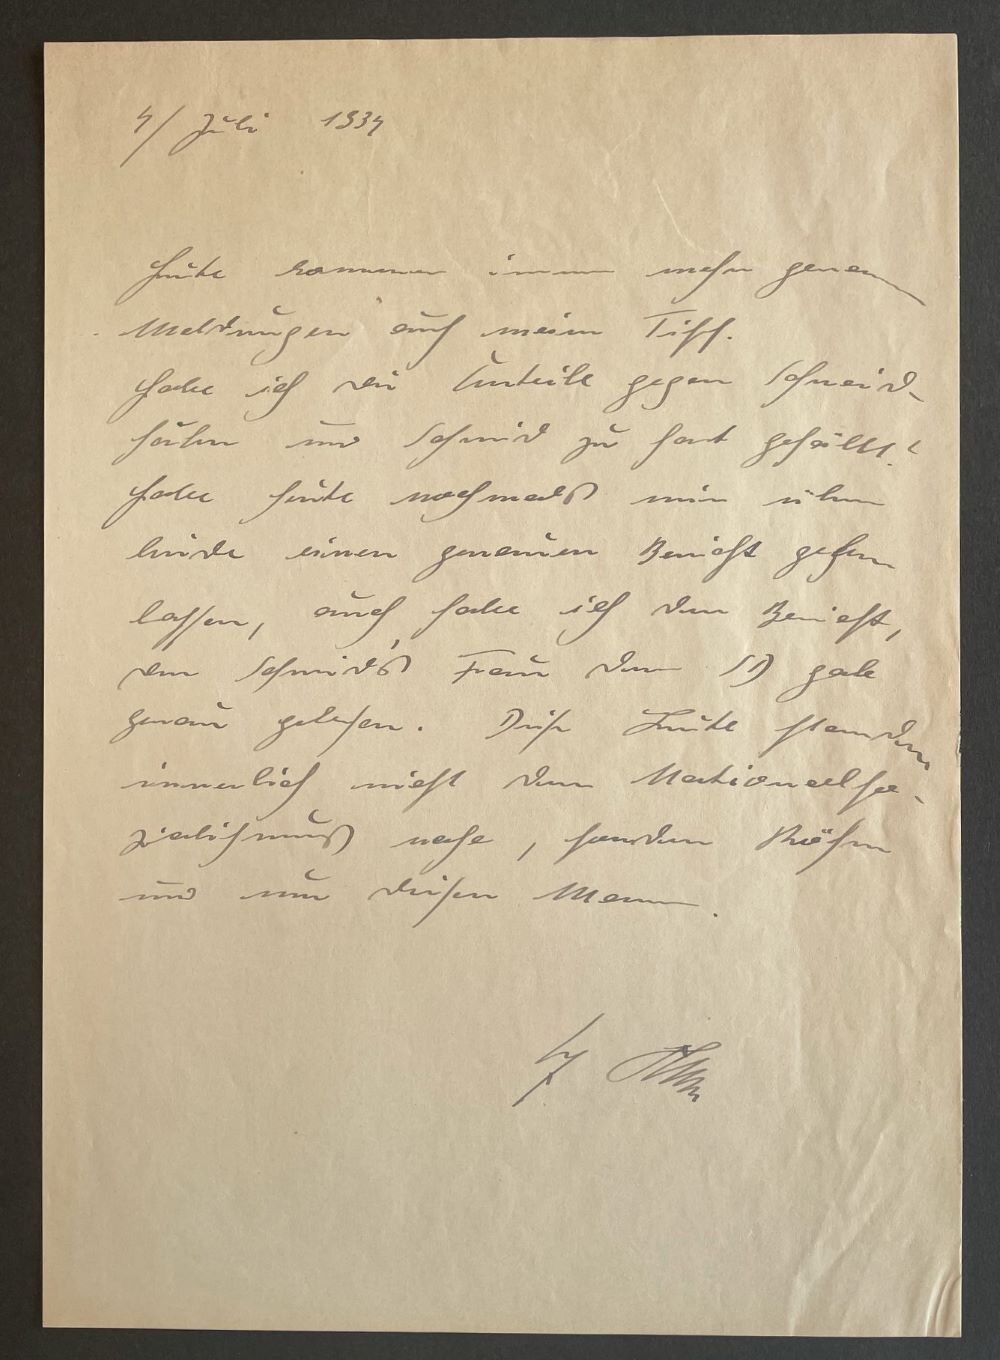 4/ Juli 1934
Heute kommen immer mehr genaue
Meldungen auf meinen Tisch.
Habe ich die Urteile gegen Schneid-
huber und Schmid zu hart gefällt?
Habe heute nochmals mir über
beide einen genauen Bericht geben
lassen, auch habe ich den Bericht,
den Schmid's Frau dem SD gab
genau gelesen. Diese Leute standen
innerlich nicht dem Nationalso-
zialismus nahe, sondern Röhm
und nur diesen Mann.